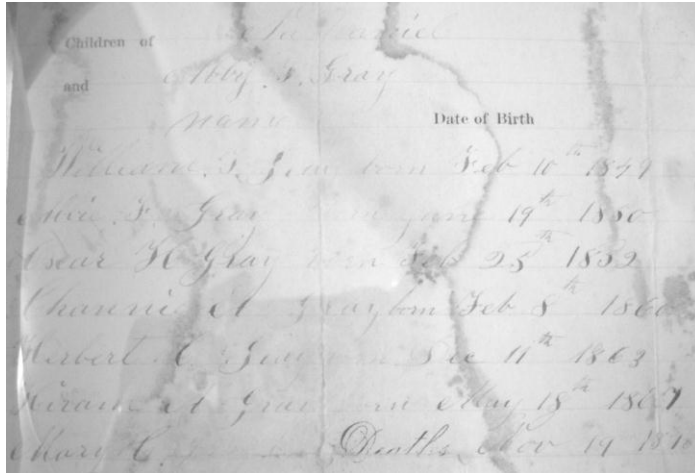 Children of
and Abby. F. Gray
Name Date of Birth
William. F. Gray born Feb 10th 1849
F. Gray born June 19th 1850
Oscar H Gray born Feb 25th 1852
Channie A Gray born Feb 8th 1860
Herbert A Gray born Dec 11th 1863
Hiram A Gray born May 18th 1867
Mary C. Deaths Nov 19